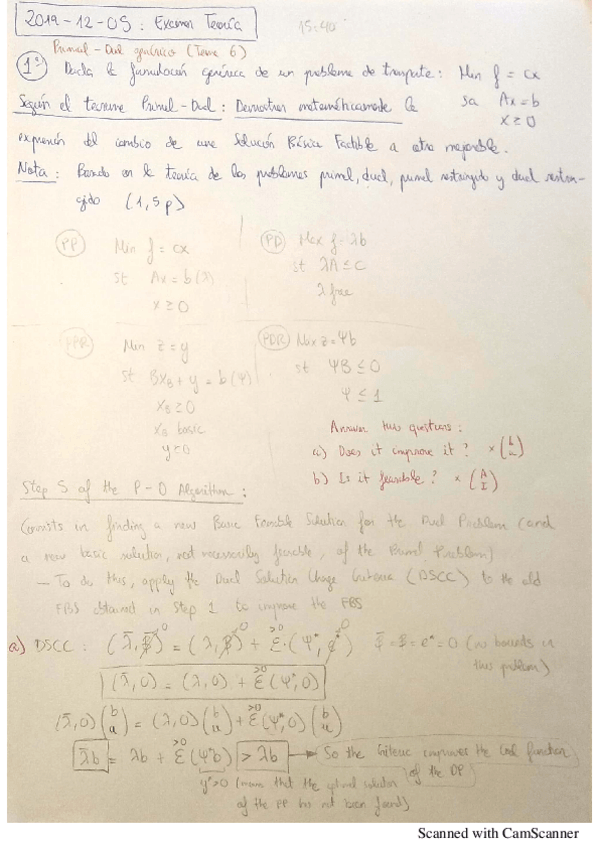 2019-12-05: Examen Teoría
15:40
Primal-Dual genérico (Tema 6)
1º Dada la formulación genérica de un problema de transporte: Min f = cx
Según el teorema Primal-Dual: Demostrar matemáticamente la sa Ax = b
x ≥ 0
expresión del cambio de una Solución Básica Factible a otra mejorable.
Nota: Basado en la teoría de los problemas primal, dual, primal restringido y dual restrin-
gido (1,5p)
PP Min f = cx
st Ax = b (λ)
x ≥ 0
PD Max f = λb
st λA ≤ C
λ free
PPR Min z = y
st BX_B + y = b (Ψ)
X_B ≥ 0
X_B basic
y ≥ 0
PDR Max z = Ψb
st ΨB ≤ 0
Ψ ≤ 1
Answer two questions:
a) Does it improve it? × (b u)
b) Is it feasible? × (A I)
Step 5 of the P-D Algorithm:
Consists in finding a new Basic Feasible Solution for the Dual Problem (and
a new basic solution, not necessarily feasible, of the Primal Problem)
- To do this, apply the Dual Solution Change Criteria (DSCC) to the old
FBS obtained in Step 1 to improve the FBS
a) DSCC: (λ̄, φ̄) = (λ, φ) + ε·(Ψ*, φ*) φ̄ = φ = φ* = 0 (no bounds in
this problem)
(λ̄, 0) = (λ, 0) + ε(Ψ*, 0)
(λ̄, 0)(b u) = (λ, 0)(b u) + ε(Ψ*, 0)(b u)
λ̄b = λb + ε(Ψ*b) > λb → So the Criteria improves the Goal function
of the DP
y*>0 (means that the optimal solution
of the PP has not been found)
Scanned with CamScanner